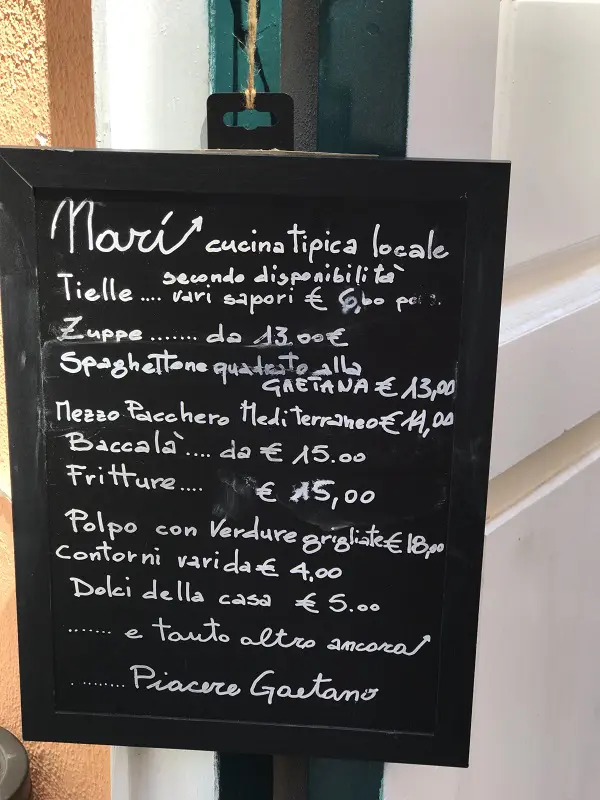 Marí cucina tipica locale
secondo disponibilità
Tielle.... vari sapori € 6,00
Zuppe ....... da 13.00€
Spaghettone quadrato alla
GAETANA € 13,00
Mezzo Pacchero Mediterraneo € 14,00
Baccalà.... da € 15.00
Fritture.... € 15,00
Polpo con Verdure grigliate € 18,00
Contorni vari da € 4,00
Dolci della casa € 5.00
....... e tanto altro ancora
........ Piacere Gaetano